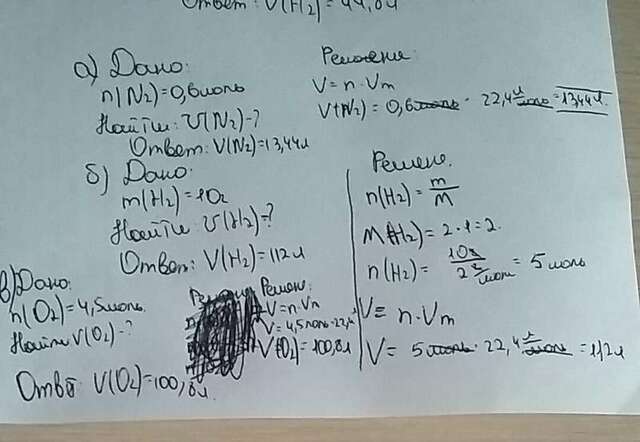 Ответ: V(H2)=44,8л
а) Дано:
n(N2)=0,6моль
Найти: V(N2)-?
Ответ: V(N2)=13,44л
Решение:
V=n·Vm
V(N2)=0,6моль·22,4л/моль=13,44л.
б) Дано:
m(H2)=10г
Найти: V(H2)-?
Ответ: V(H2)=112л
Решение.
n(H2)=m/M
M(H2)=2·1=2.
n(H2)=10г/2г/моль=5моль
V=n·Vm
V=5моль·22,4л/моль=112л
в) Дано:
n(O2)=4,5моль.
Найти V(O2)-?
Ответ: V(O2)=100,8л.
Решен:
V=n·Vm
V=4,5моль·22,4
V(O2)=100,8л